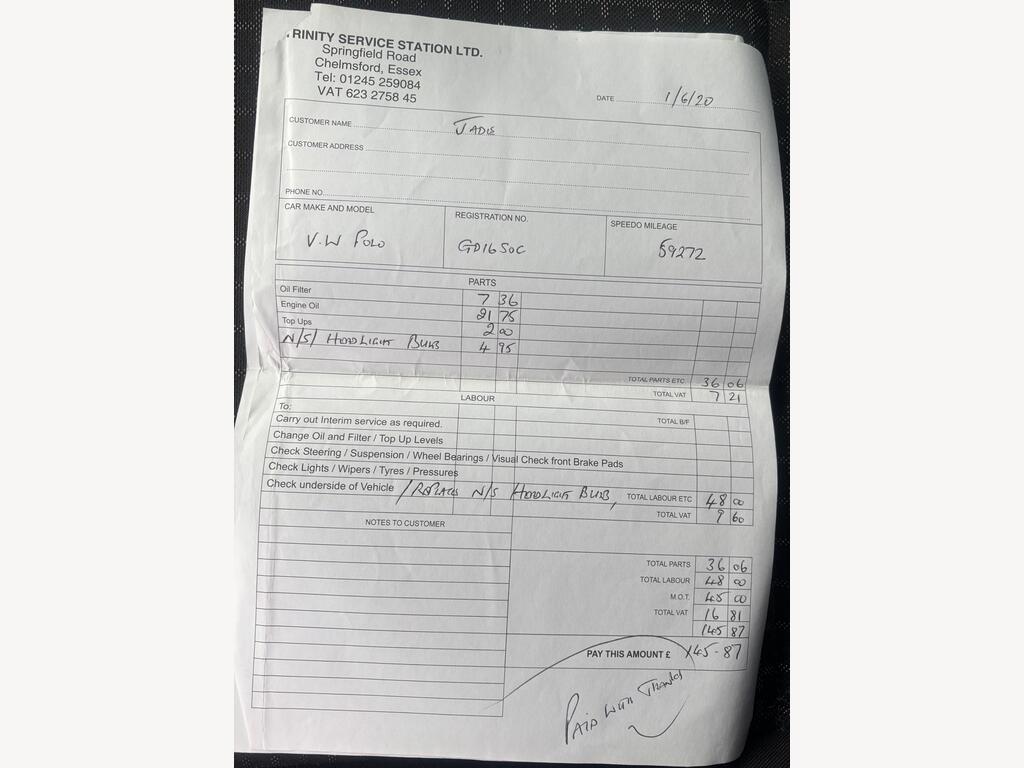 RINITY SERVICE STATION LTD.
Springfield Road
Chelmsford, Essex
Tel: 01245 259084
VAT 623 2758 45
DATE 1/6/20
CUSTOMER NAME
CUSTOMER ADDRESS
PHONE NO.
CAR MAKE AND MODEL REGISTRATION NO. SPEEDO MILEAGE
V.W POLO GD16 SOC 59272
PARTS
Oil Filter 7 36
Engine Oil 21 75
Top Ups 2 00
N/S/ HEADLIGHT BULB 4 95
TOTAL PARTS ETC 36 06
TOTAL VAT 7 21
LABOUR
To: TOTAL B/F
Carry out Interim service as required.
Change Oil and Filter / Top Up Levels
Check Steering / Suspension / Wheel Bearings / Visual Check front Brake Pads
Check Lights / Wipers / Tyres / Pressures
Check underside of Vehicle / REPLACE N/S HEADLIGHT BULB, TOTAL LABOUR ETC 48 00
TOTAL VAT 9 60
NOTES TO CUSTOMER
TOTAL PARTS 36 06
TOTAL LABOUR 48 00
M.O.T. 45 00
TOTAL VAT 16 81
145 87
PAY THIS AMOUNT £ 145-87
PAID WITH THANKS